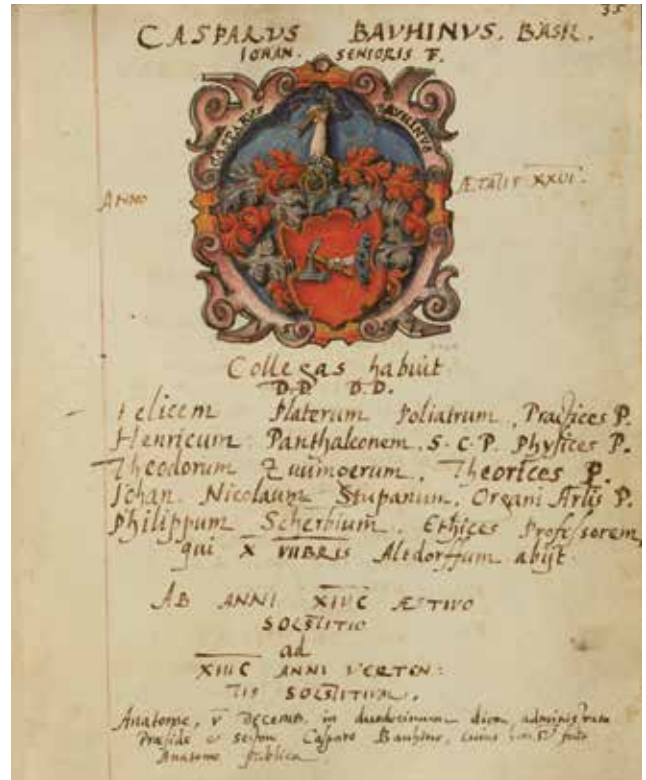 35
CASPARUS BAUHINUS. BASIL.
IOHAN. SENIORIS F.
CASPARUS BAUHINUS
ANNO ÆTATIS XXVI.
Collegas habuit
D.D. D.D.
Felicem Platerum Poliatrum, Practices P.
Henricum Panthaleonem. S.C.P. Physices P.
Theodorum Zuinnerum, Theorices P.
Johan. Nicolaum Stupanum, Organi Artis P.
Philippum Scherbium, Ethices Professorem,
qui X VIIBRIS Altdorffum abijt
AB ANNI XIVC ÆSTIVO
SOLSTITIO
ad
XIVC ANNI VERTEN:
TIS SOLSTITIUM.
Anatome, V Decemb. in duodecimum diem, administrata
Præside & Caspare Bauhino,
Anatome publica